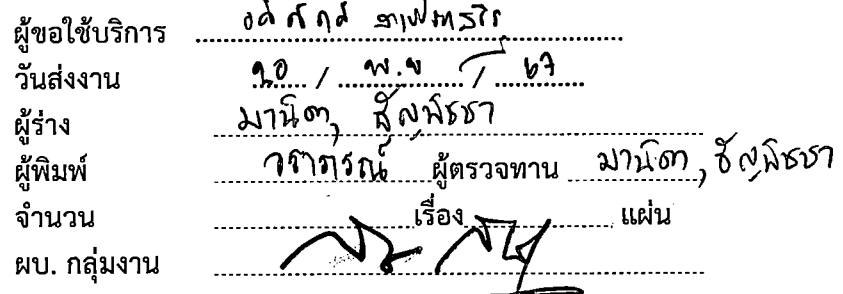 ผู้ขอใช้บริการ
วันส่งงาน 20 / พ.ย / 67
ผู้ร่าง มานิตา, ธัญพิชชา
ผู้พิมพ์ วราภรณ์ ผู้ตรวจทาน มานิตา, ธัญพิชชา
จำนวน เรื่อง แผ่น
ผบ. กลุ่มงาน